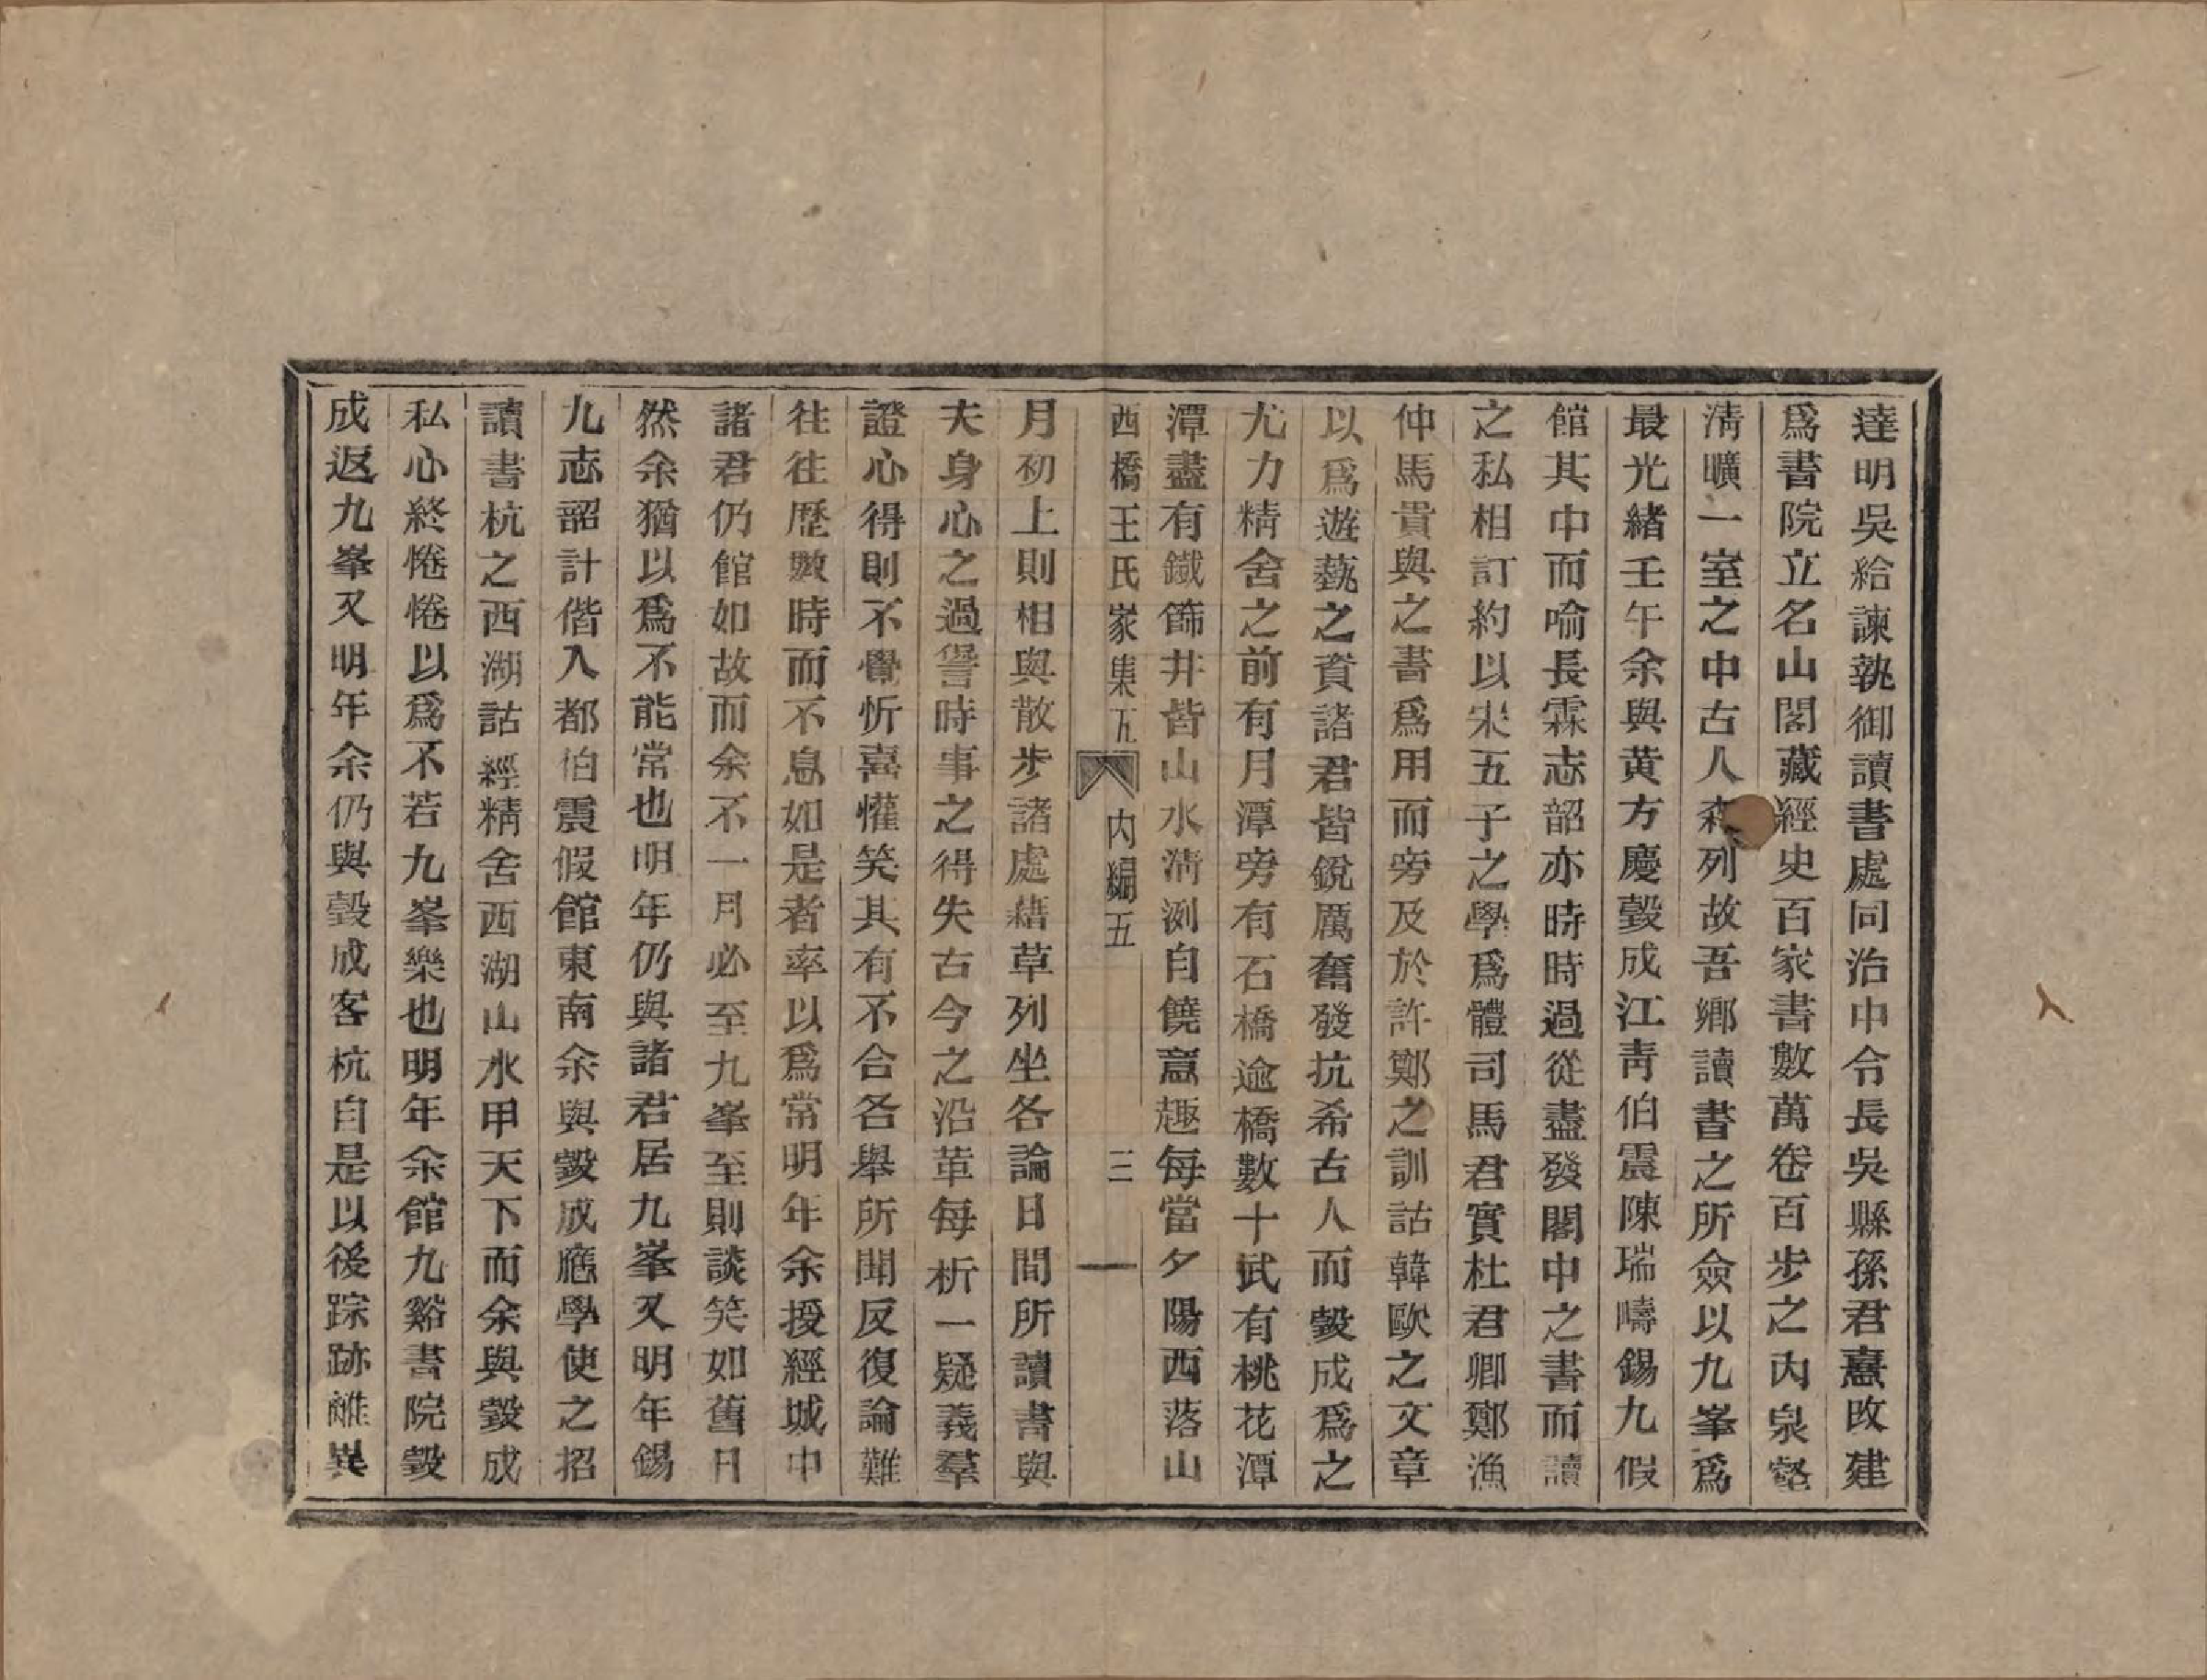 達明吳給諫執御讀書處同治中令長吳縣孫君憙改建
爲書院立名山閣藏經史百家書數萬卷百步之內泉壑
清曠一室之中古人森列故吾鄉讀書之所僉以九峯爲
最光緒壬午余與黃方慶瑴成江靑伯震陳瑞疇錫九假
館其中而喻長霖志韶亦時時過從盡發閣中之書而讀
之私相訂約以宋五子之學爲體司馬君實杜君卿鄭漁
仲馬貴與之書爲用而旁及於許鄭之訓詁韓歐之文章
以爲遊藝之資諸君皆銳厲奮發抗希古人而瑴成爲之
尤力精舍之前有月潭旁有石橋逾橋數十武有桃花潭
潭盡有鐵篩井皆山水清洌自饒意趣每當夕陽西落山
西橋王氏家集五 內編五 三
月初上則相與散步諸處藉草列坐各論日間所讀書與
夫身心之過訾時事之得失古今之沿革每析一疑義羣
證心得則不覺忻喜懽笑其有不合各舉所聞反復論難
往往歷數時而不息如是者率以爲常明年余授經城中
諸君仍館如故而余不一月必至九峯至則談笑如舊日
然余猶以爲不能常也明年仍與諸君居九峯又明年錫
九志韶計偕入都伯震假館東南余與瑴成應學使之招
讀書杭之西湖詁經精舍西湖山水甲天下而余與瑴成
私心終惓惓以爲不若九峯樂也明年余館九谿書院瑴
成返九峯又明年余仍與瑴成客杭自是以後踪跡離異